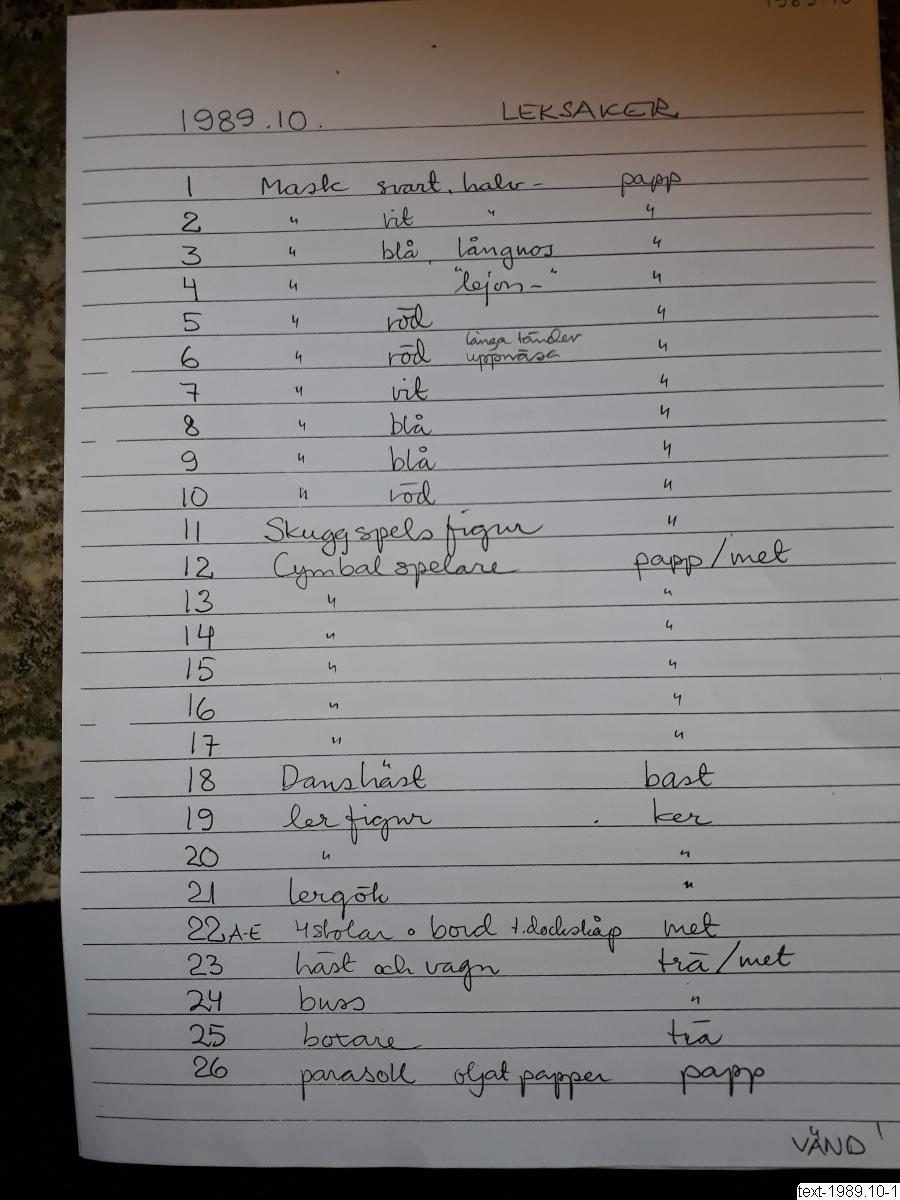 1989.10
1989.10. LEKSAKER
1 Mask svart, halv- papp
2 " vit " "
3 " blå, långnos "
4 " "lejon-" "
5 " röd "
6 " röd långa tänder uppnäsa "
7 " vit "
8 " blå "
9 " blå "
10 " röd "
11 Skuggspelsfigur "
12 Cymbalspelare papp/met
13 " "
14 " "
15 " "
16 " "
17 " "
18 Danshäst bast
19 lerfigur ker
20 " "
21 lergök "
22 A-E 4 stolar o bord t. dockskåp met
23 häst och vagn trä/met
24 buss "
25 boxare trä
26 parasoll oljat papper papp
VÄND!
text-1989.10-1